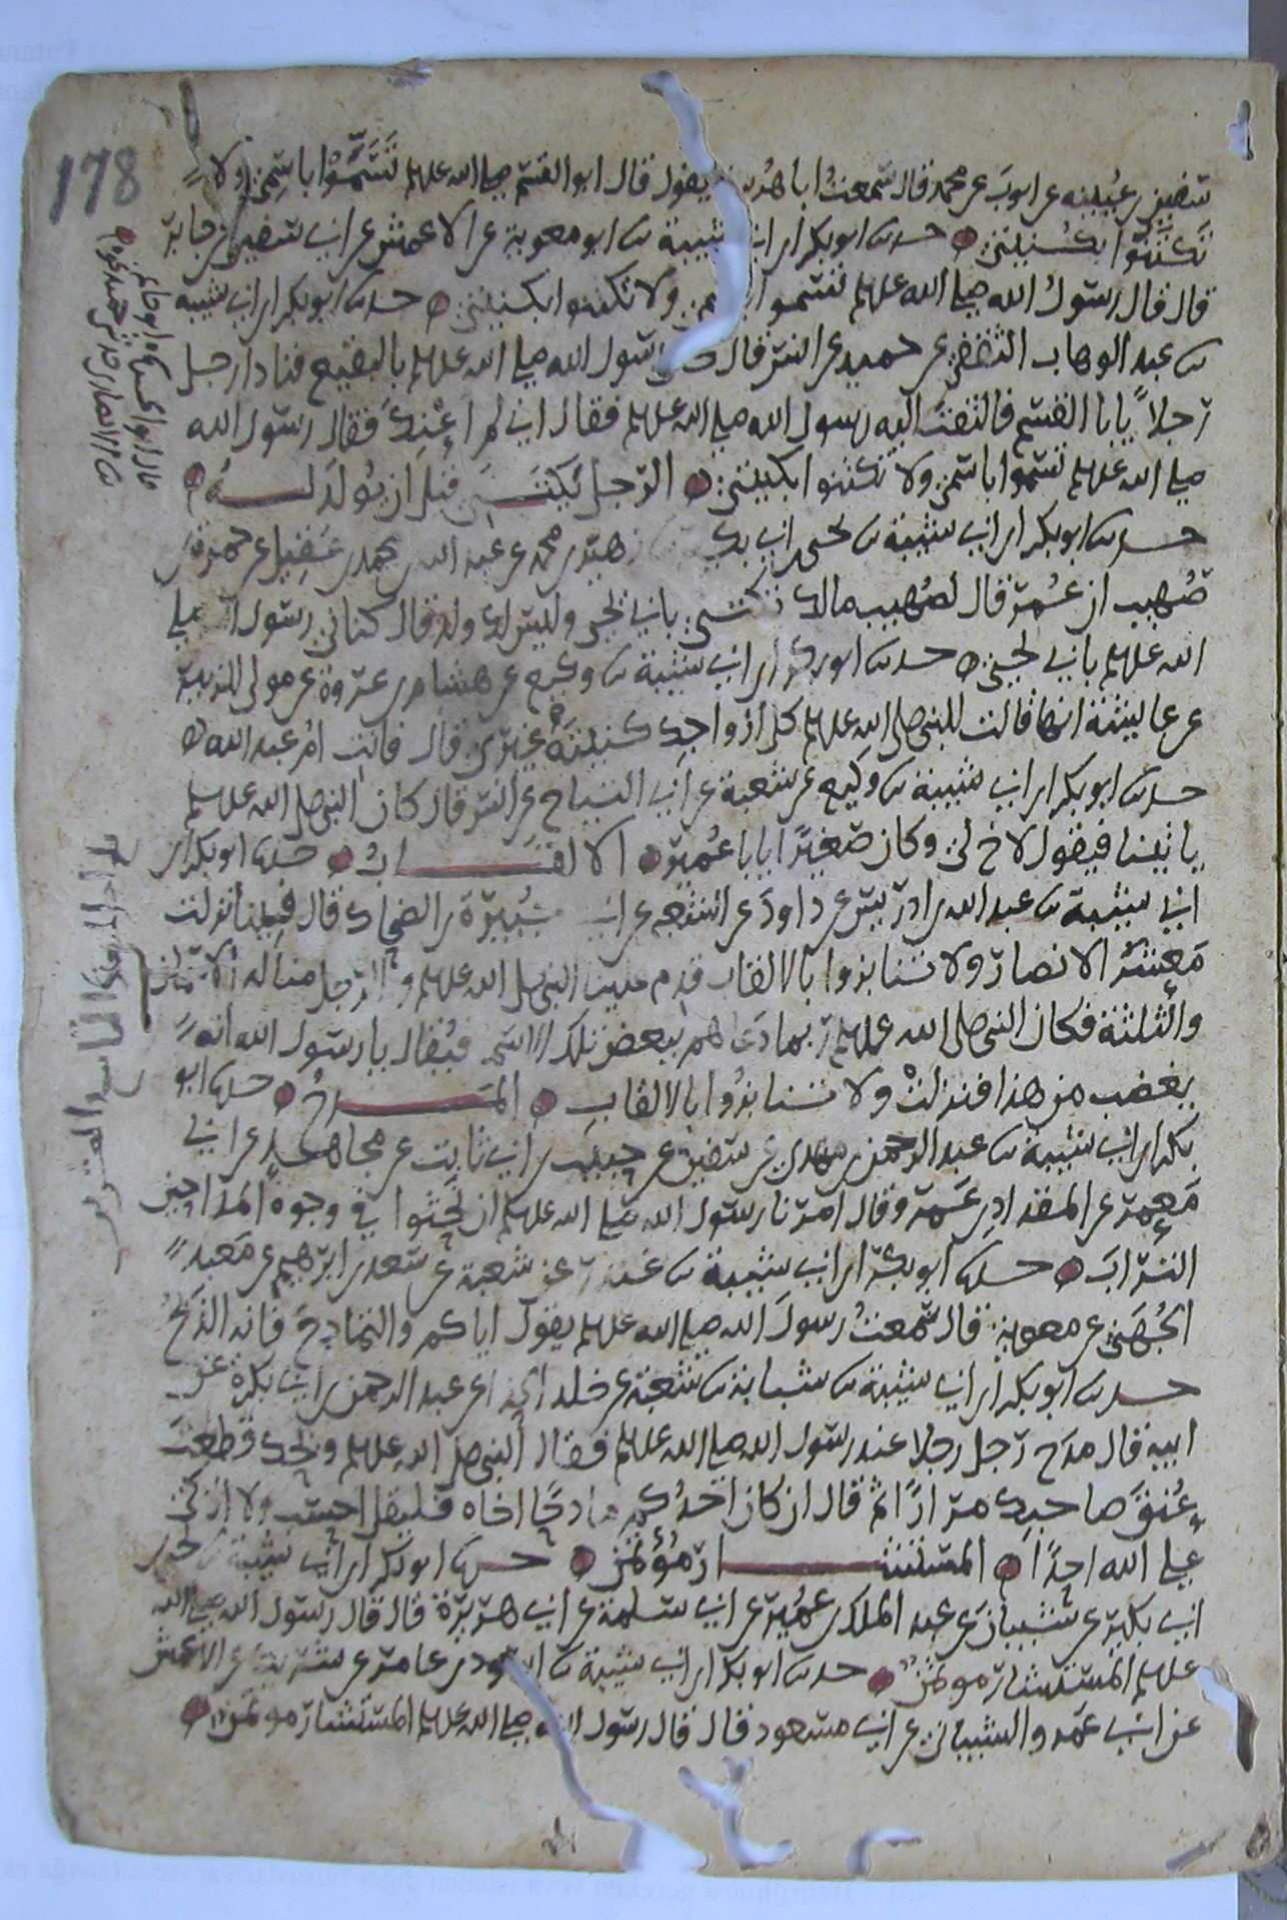 178
سفين بن عيينه عن ايوب عن محمد قال سمعت ابا هريرة يقول قال ابو القسم صلى الله عليه وسلم تسموا باسمي ولا
تكنوا بكنيتي حدثنا ابو بكر ابن ابي شيبة ثنا ابو معوية عن الاعمش عن ابي سفين عن جابر
قال قال رسول الله صلى الله عليه وسلم تسموا باسمي ولا تكنوا بكنيتي حدثنا ابو بكر ابن ابي شيبه
ثنا عبد الوهاب الثقفي عن حميد عن انس قال كان رسول الله صلى الله عليه وسلم بالبقيع فنادا رجل
رجلا يابا القسم فالتفت اليه رسول الله صلى الله عليه وسلم فقال اني لم اعنك فقال رسول الله
صلى الله عليه وسلم تسموا باسمي ولا تكنوا بكنيتي الرجل يكتني قبل ان يولد له
حدثنا ابو بكر ابن ابي شيبة ثنا يحيى بن ابي بكير ثنا زهير بن محمد عن عبد الله بن محمد بن عقيل عن حمزة بن
صهيب ان عمر قال لصهيب مالك تكتني بابي يحيى وليس لك ولد قال كناني رسول الله صلى
الله عليه وسلم بابي يحيى حدثنا ابو بكر ابن ابي شيبة ثنا وكيع عن هشام بن عروة عن مولى للزبير
عن عايشة انها قالت للنبي صلى الله عليه وسلم كل ازواجك كنيته غيري قال فانت ام عبد الله
حدثنا ابو بكر ابن ابي شيبة ثنا وكيع عن شعبة عن ابي التياح عن انس قال كان النبي صلى الله عليه وسلم
ياتينا فيقول لاخ لي وكان صغيرا يابا عمير الالقاب حدثنا ابو بكر ابن
ابي شيبة ثنا عبد الله بن ادريس عن داود عن الشعبي عن ابي جبيرة بن الضحاك قال فينا نزلت
معشر الانصار ولا تنابزوا بالالقاب قدم علينا النبي صلى الله عليه وسلم والرجل منا له الاسمان
والثلثة فكان النبي صلى الله عليه وسلم ربما دعاهم ببعض تلك الاسما فيقال يا رسول الله انه
يغضب من هذا فنزلت ولا تنابزوا بالالقاب المدح حدثنا ابو
بكر ابن ابي شيبة ثنا عبد الرحمن بن مهدي عن سفين عن حبيب بن ابي ثابت عن مجاهد عن ابي
معمر عن المقداد بن عمرو قال امرنا رسول الله صلى الله عليه وسلم ان نحثوا في وجوه المداحين
التراب حدثنا ابو بكر ابن ابي شيبة ثنا غندر عن شعبة عن سعد بن ابرهيم عن معبد
الجهني عن معوية قال سمعت رسول الله صلى الله عليه وسلم يقول اياكم والتمادح فانه الذبح
حدثنا ابو بكر ابن ابي شيبة ثنا شبابة ثنا شعبة عن خلد الحذا عن عبد الرحمن بن ابي بكرة عن
ابيه قال مدح رجل رجلا عند رسول الله صلى الله عليه وسلم فقال النبي صلى الله عليه وسلم ويحك قطعت
عنق صاحبك مرارا ثم قال ان كان احدكم مادحا اخاه فليقل احسبه ولا ازكي
على الله احدا المستشار مؤتمن حدثنا ابو بكر ابن ابي شيبة ثنا يحيى بن
ابي بكير عن شيبان عن عبد الملك بن عمير عن ابي سلمة عن ابي هريرة قال قال رسول الله صلى الله
عليه وسلم المستشار موتمن حدثنا ابو بكر ابن ابي شيبة ثنا اسود بن عامر عن شريك عن الاعمش
عن ابي عمرو الشيباني عن ابي مسعود قال قال رسول الله صلى الله عليه وسلم المستشار موتمن